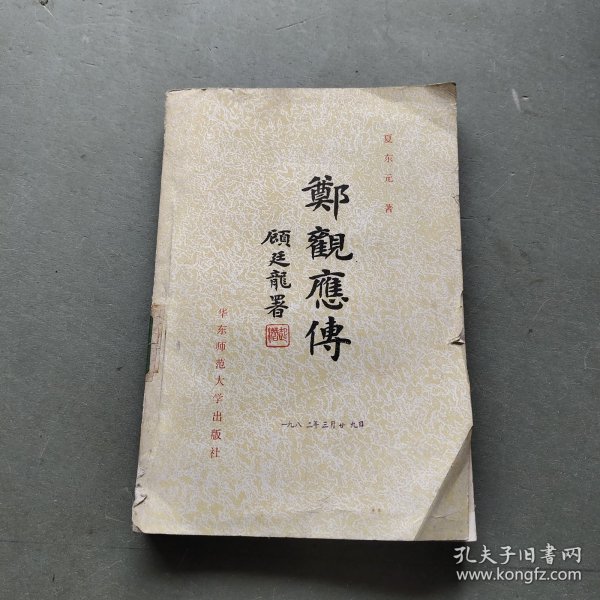 夏东元 著
鄭觀應傳
顧廷龍署
华东师范大学出版社
一九八二年三月廿九日
孔夫子旧書网
www.kongfz.com